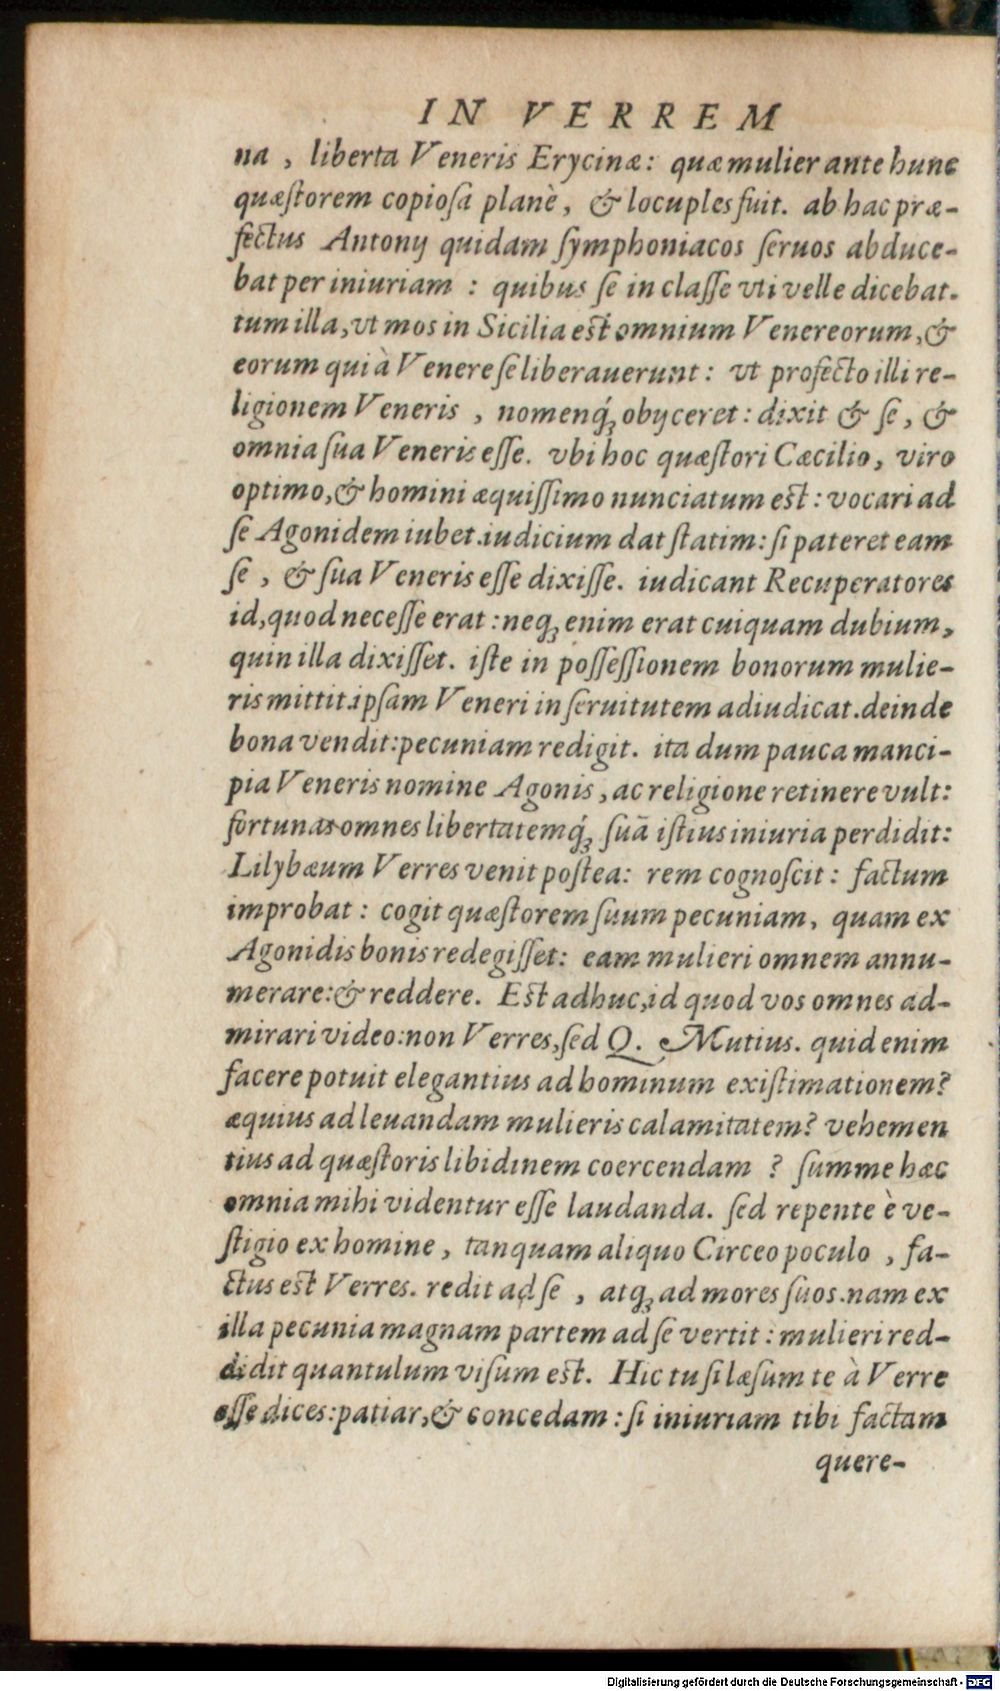 IN VERREM
na , liberta Veneris Erycinæ: quæ mulier ante hunc
quæſtorem copioſa planè, & locuples fuit. ab hac præ-
fectus Antonij quidam ſymphoniacos ſeruos abduce-
bat per iniuriam : quibus ſe in claſſe vti velle dicebat.
tum illa, vt mos in Sicilia est omnium Venereorum, &
eorum qui à Venere ſe liberauerunt: vt profecto illi re-
ligionem Veneris , nomenq́; obijceret: dixit & ſe, &
omnia ſua Veneris eſſe. vbi hoc quæſtori Cæcilio, viro
optimo, & homini æquiſſimo nunciatum est: vocari ad
ſe Agonidem iubet. iudicium dat ſtatim: ſi pateret eam
ſe , & ſua Veneris eſſe dixiſſe. iudicant Recuperatores
id, quod neceſſe erat: neq; enim erat cuiquam dubium,
quin illa dixiſſet. iſte in poſſeſſionem bonorum mulie-
ris mittit. ipſam Veneri in ſeruitutem adiudicat. deinde
bona vendit: pecuniam redigit. ita dum pauca manci-
pia Veneris nomine Agonis, ac religione retinere vult:
fortunas omnes libertatemq́; ſuã iſtius iniuria perdidit:
Lilybæum Verres venit poſtea: rem cognoſcit: factum
improbat: cogit quæſtorem ſuum pecuniam, quam ex
Agonidis bonis redegiſſet: eam mulieri omnem annu-
merare: & reddere. Est adhuc, id quod vos omnes ad-
mirari video: non Verres, ſed Q. Mutius. quid enim
facere potuit elegantius ad hominum exiſtimationem?
æquius ad leuandam mulieris calamitatem? vehemen
tius ad quæſtoris libidinem coercendam ? ſumme hæc
omnia mihi videntur eſſe laudanda. ſed repente è ve-
ſtigio ex homine, tanquam aliquo Circeo poculo , fa-
ctus est Verres. redit ad ſe , atq; ad mores ſuos. nam ex
illa pecunia magnam partem ad ſe vertit: mulieri red-
didit quantulum viſum est. Hic tu ſi læſum te à Verre
eſſe dices: patiar, & concedam: ſi iniuriam tibi factam
quere-
Digitalisierung gefördert durch die Deutsche Forschungsgemeinschaft - DFG